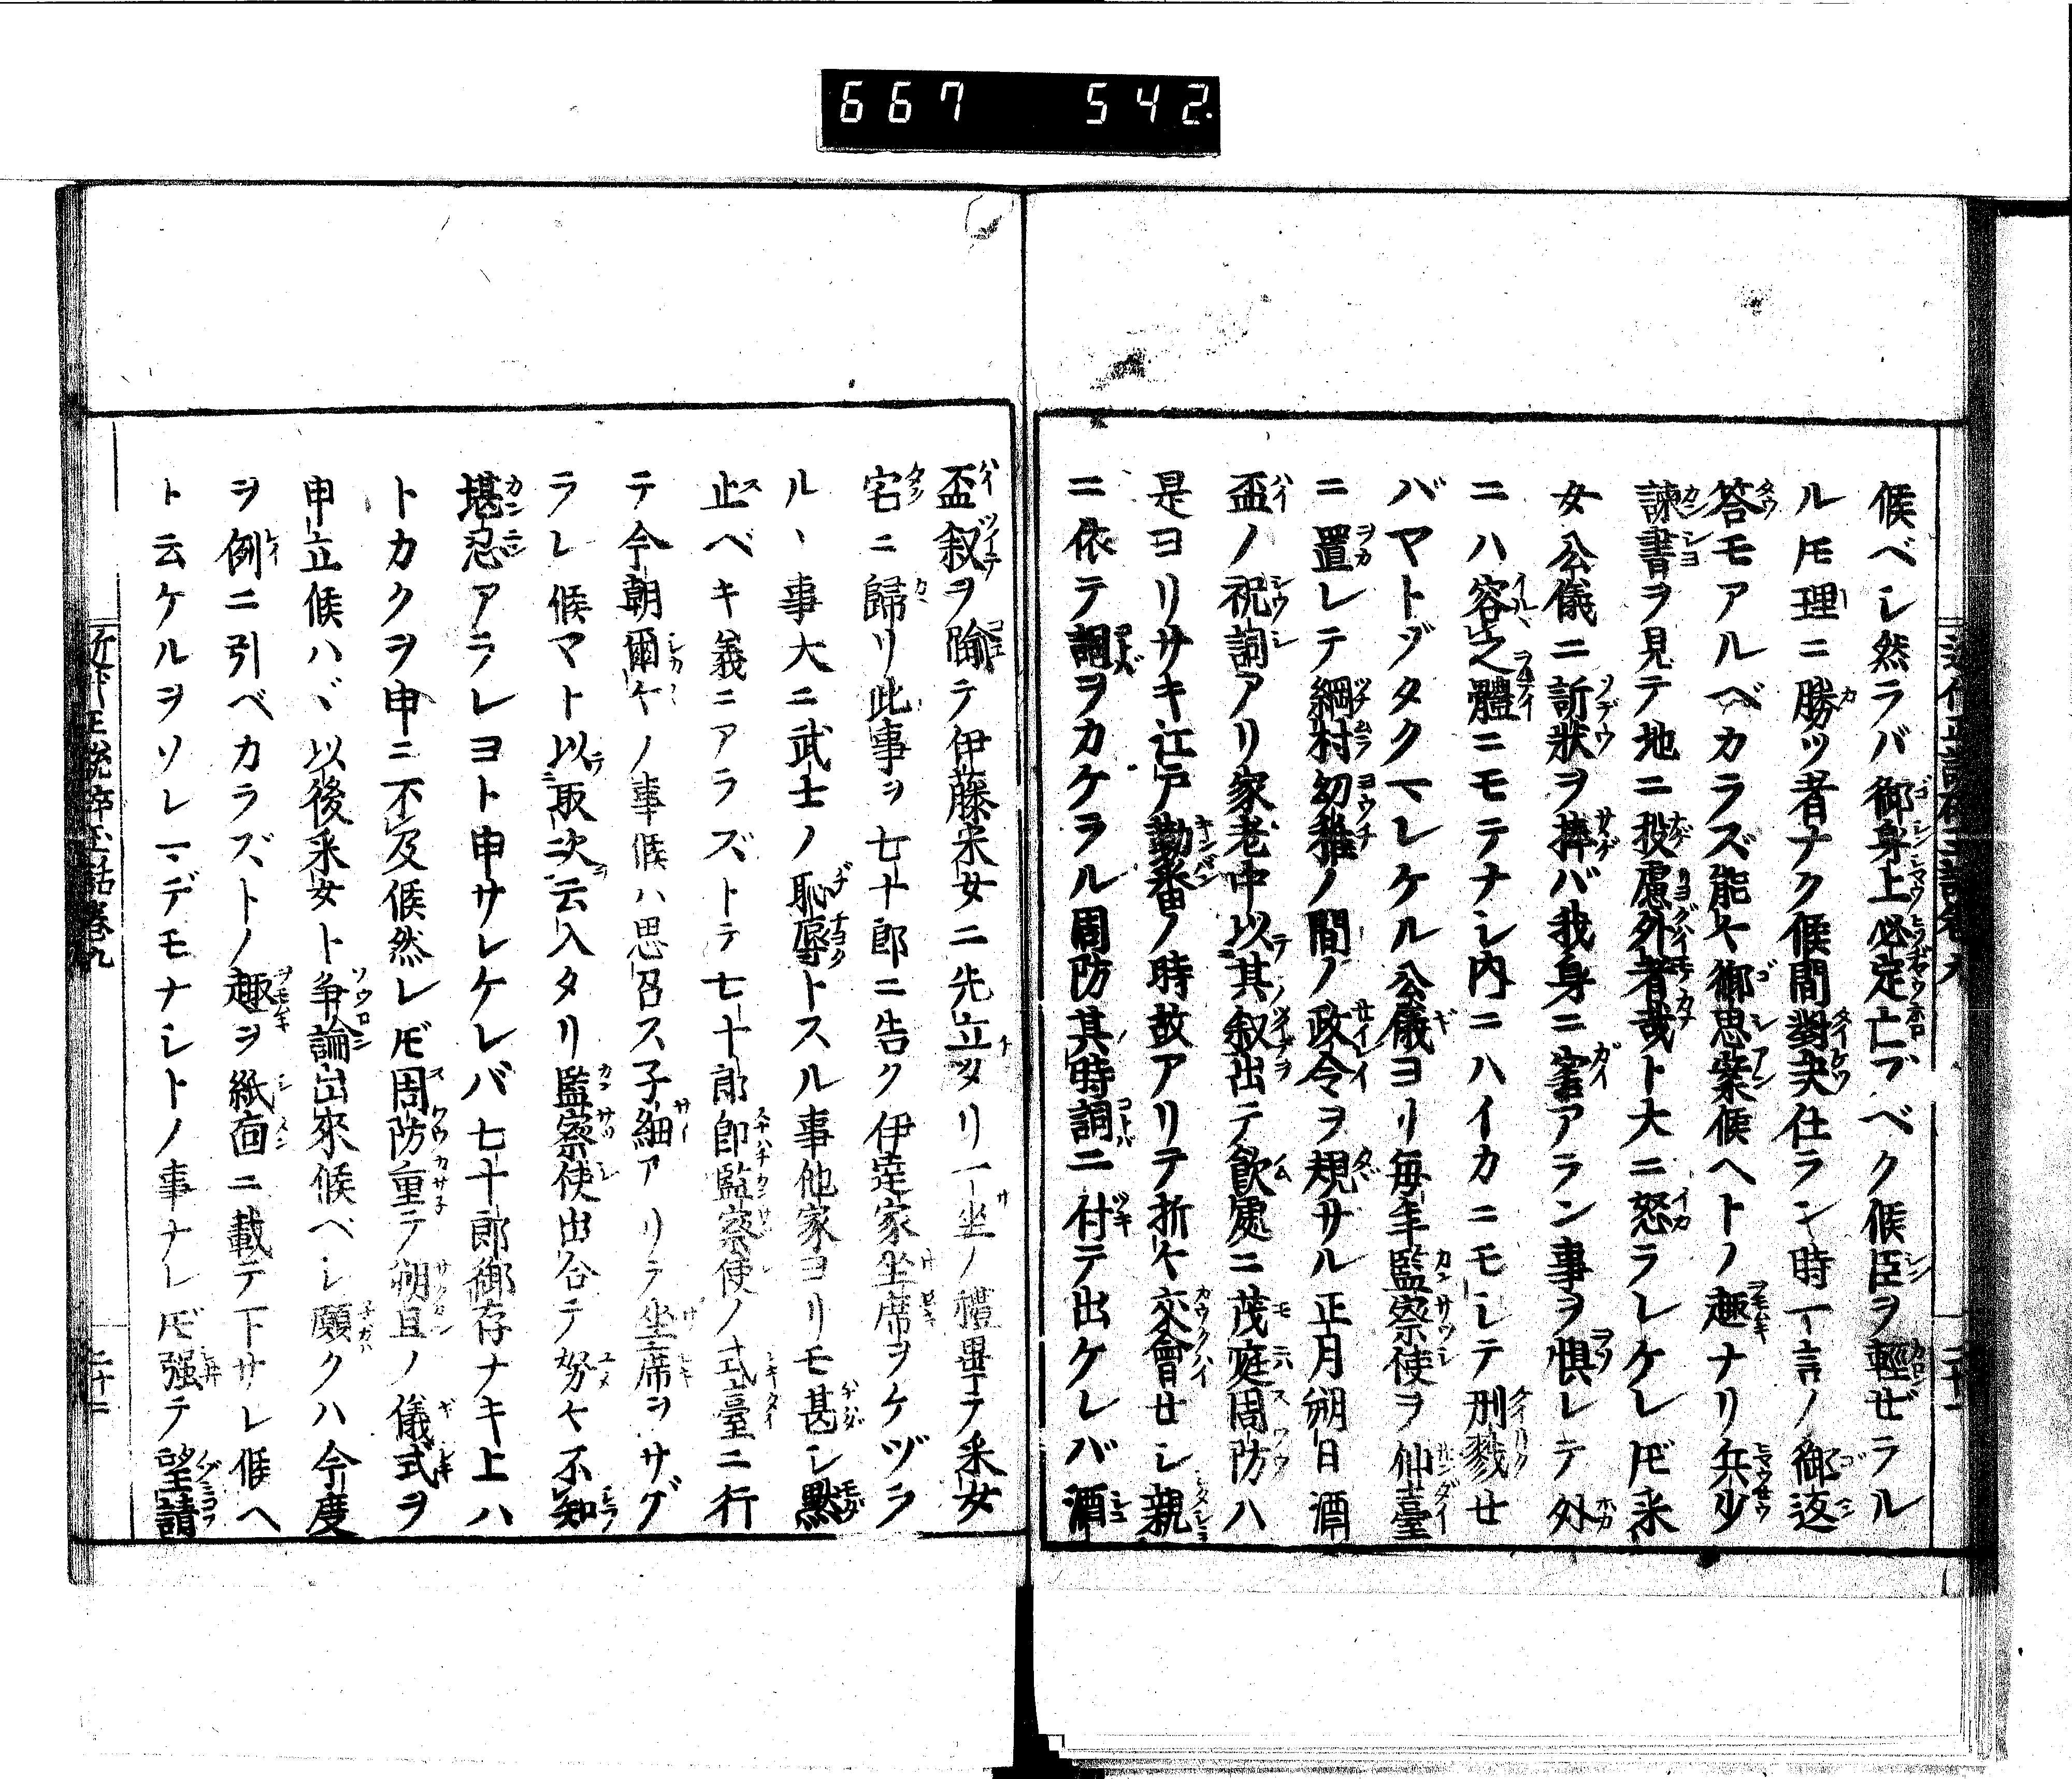 667 542
候ベシ然ラバ御身上必定亡ブベク候臣ヲ輕ゼラル
ルモ理ニ勝ツ者ナク候間對决仕ラン時一言ノ御返
答モアルベカラズ能々御思案候ヘトノ趣ナリ兵少
諫書ヲ見テ地ニ投慮外者哉ト大ニ怒ラレケレ𪜈釆
女公儀ニ訴狀ヲ捧バ我身ニ害アラン事ヲ惧レテ外
ニハ容之體ニモテナシ内ニハイカニモシテ刑戮セ
バヤトゾタクマレケル公儀ヨリ毎年監察使ヲ仙臺
ニ置レテ綱村幼稚ノ間ノ政令ヲ規サル正月朔日酒
盃ノ祝詞アリ家老中以其叙出テ飮處ニ茂庭周防ハ
是ヨリサキ江戸勤番ノ時故アリテ折々交會セシ親
ニ依テ詞ヲカケラル周防其時詞ニ付テ出ケレバ酒
盃叙ヲ踰テ伊藤釆女ニ先立タリ一坐ノ禮畢テ釆女
宅ニ歸リ此事ヲ七十郎ニ告ク伊達家坐席ヲケヅラ
ルヽ事大ニ武士ノ恥辱トスル事他家ヨリモ甚シ默
止ベキ義ニアラズトテ七十郎即監察使ノ式臺ニ行
テ今朝爾々ノ事候ハ思召ス子細アリテ坐席ヲサゲ
ラレ候ヤト以取次云入タリ監察使出合テ努々不知
堪忍アラレヨト申サレケレバ七十郎御存ナキ上ハ
トカクヲ申ニ不及候然レ𪜈周防重テ朔旦ノ儀式ヲ
申立候ハヾ以後釆女ト争論出來候ベシ願クハ今度
ヲ例ニ引ベカラズトノ趣ヲ紙面ニ載テ下サレ候ヘ
ト云ケルヲソレマデモナシトノ事ナレ𪜈强テ望請
卷九
二十二